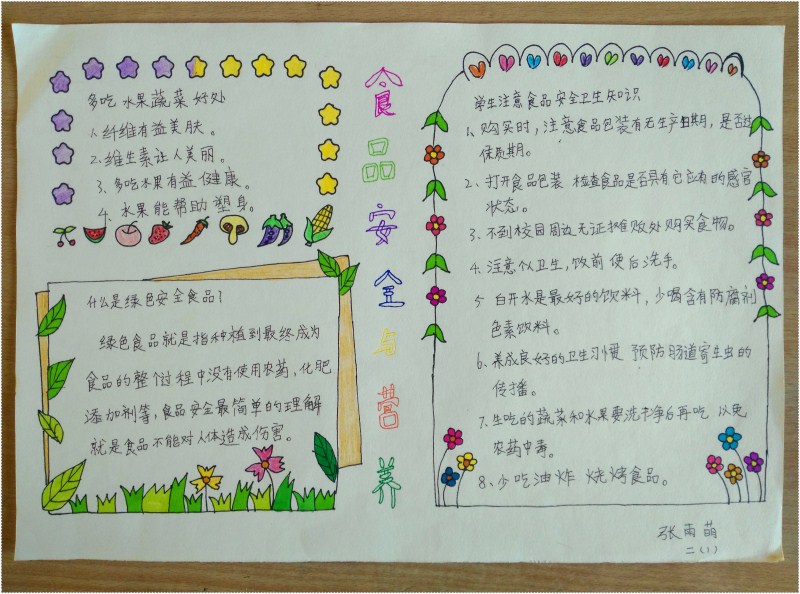 多吃水果蔬菜好处
1.纤维有益美肤。
2.维生素让人美丽。
3、多吃水果有益健康。
4、水果能帮助塑身。
什么是绿色安全食品？
绿色食品就是指种植到最终成为
食品的整个过程中没有使用农药，化肥
添加剂等，食品安全最简单的理解
就是食品不能对人体造成伤害。
食品安全与营养
学生注意食品安全卫生知识
1、购买时，注意食品包装有无生产日期，是否过
保质期。
2、打开食品包装 检查食品是否具有它应有的感官
状态。
3、不到校园周边无证摊贩处购买食物。
4、注意个人卫生，饮前便后洗手。
5 白开水是最好的饮料，少喝含有防腐剂
色素饮料。
6、养成良好的卫生习惯 预防肠道寄生虫的
传播。
7、生吃的蔬菜和水果要洗干净后再吃 以免
农药中毒。
8、少吃油炸 烧烤食品。
张雨萌
二（1）